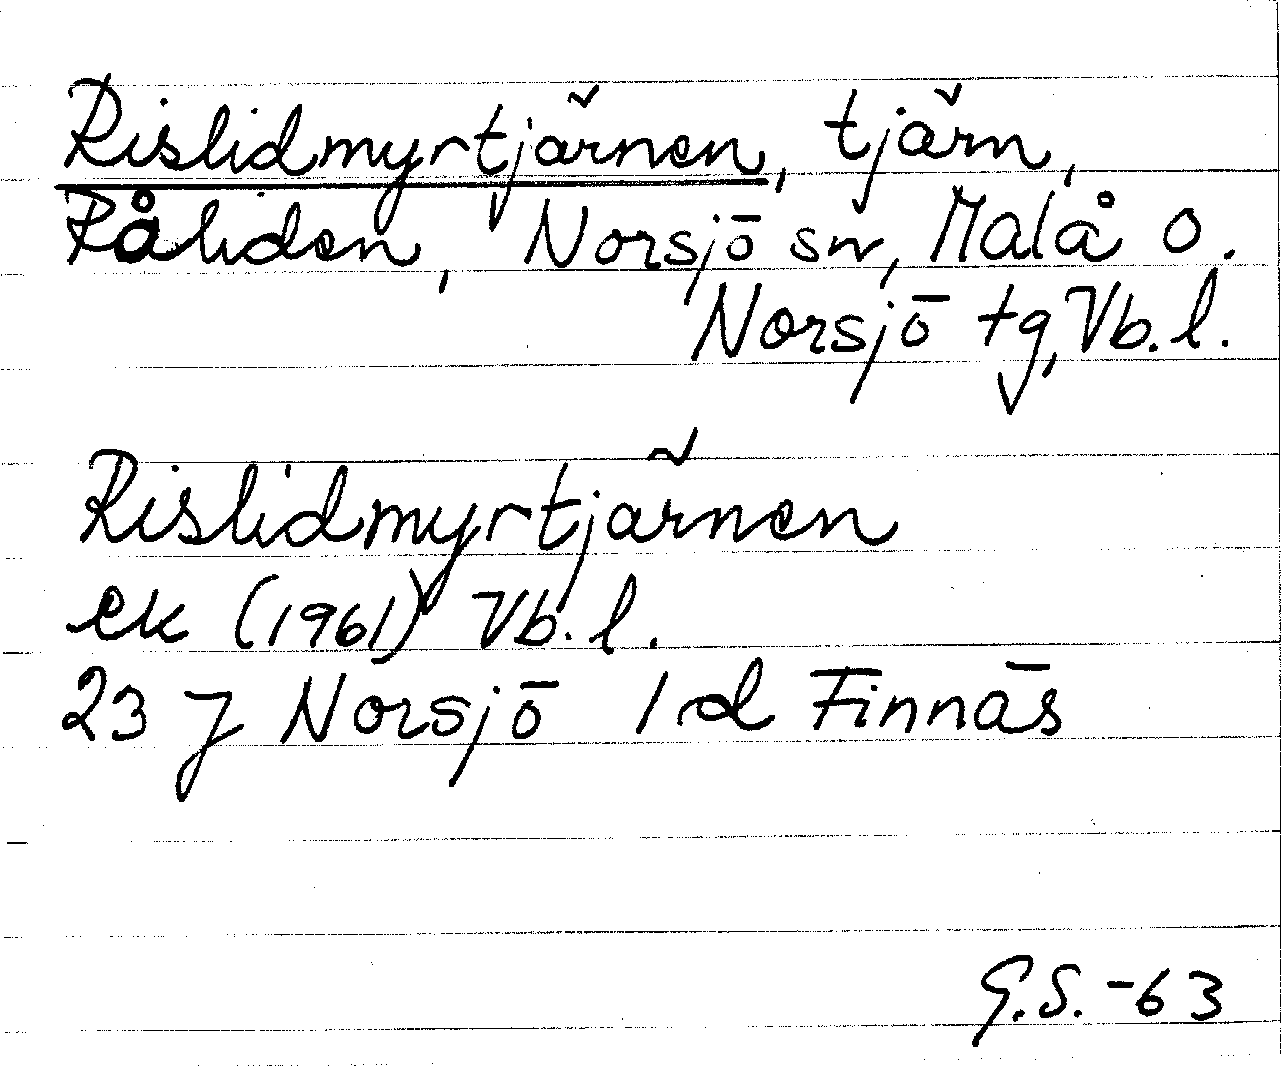 Rislidmyrtjärnen, tjärn,
Råliden, Norsjö sn, Malå o.
Norsjö tg, Vb. l.
Rislidmyrtjärnen
ek (1961) Vb. l.
23 J Norsjö 1d Finnäs
G.S. -63